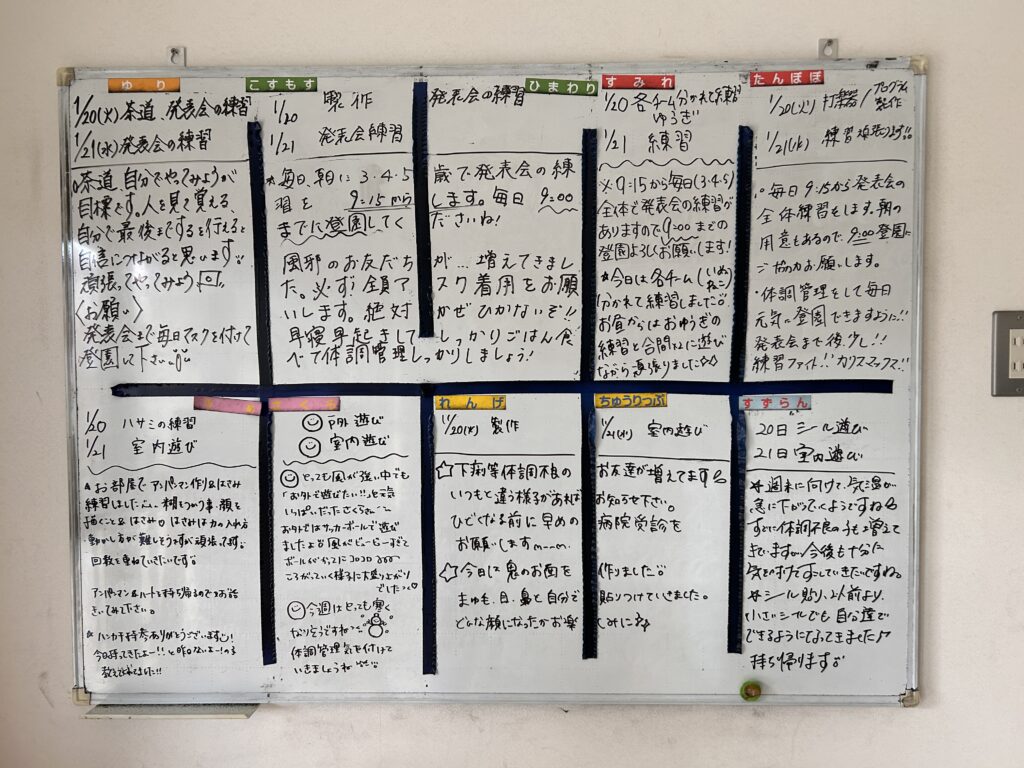 ゆり
1/20(火)茶道、発表会の練習
1/21(水)発表会の練習
茶道、自分でやってみようが
目標です。人を見て覚える、
自分で最後まですると行えると
自信につながると思います
頑張ってやってみよう回
〈お願い〉
発表会まで毎日マスクを付けて
登園して下さい。
こすもす
1/20 製作
1/21 発表会練習
ひまわり
発表会の練習
毎日、朝に3・4・5歳で発表会の練
習を 9:15からします。毎日 9:00
までに登園してくださいね!
風邪のお友だちが…増えてきまし
た。必ず!全員マスク着用をお願
いします。絶対かぜひかないぞ!!
早寝早起きしてしっかりごはん食
べて体調管理しっかりしましょう!
すみれ
1/20 各チーム分かれて練習
ゆうぎ
1/21 練習
※9:15から毎日(3・4・5)
全体で発表会の練習が
ありますので9:00までの
登園よろしくお願いします!
☆今日は各チーム(いぬ ねこ)
分かれて練習しました。
お昼からはおゆうぎの
練習と合間に遊び
ながら頑張りました☆
たんぽぽ
1/20(火) 打楽器/プログラム製作
1/21(水) 練習頑張ります!!
・毎日9:15から発表会の
全体練習をします。朝の
用意もあるので9:00登園に
ご協力お願いします。
・体調管理をして毎日
元気に登園できますように!!
発表会まで後少し!!
練習ファイト!!
1/20 ハサミの練習
1/21 室内遊び
お部屋でアンパンマン作り&はさみ
練習しました。糊をつける事、顔を
描くこと&はさみ♡はさみは力の入れ方
動かし方が難しそうですが頑張ってます。
回数を重ねていきたいです。
アンパンマン&ハートを持ち帰るのでお話
きいてみて下さい。
☆ハンカチ持参ありがとうございます!
今日持ってきたよー!!と
教えてくれました!!
戸外遊び
室内遊び
とっても風が強い中でも
「お外で遊びたい!!」と元気
いっぱいだったさくらさん
お外ではサッカーボールで遊び
ましたよ 風がビュービューすぎて
ボールがかってにコロコロ
ころがっていく様子に大盛り上がり
でした♡
今週はとっても寒く
なりそうですね
体調管理気を付けて
いきましょうね
れんげ
1/20(火) 製作
ちゅうりっぷ
1/21(水) 室内遊び
☆下痢等体調不良のお友達が増えてます。
いつもと違う様子があればお知らせ下さい。
ひどくなる前に早めの病院受診を
お願いしますm__m
☆今日は鬼のお面を作りました。
まゆも、目、鼻と自分で貼りつけていきました。
どんな顔になったかお楽しみに☆
すずらん
20日 シール遊び
21日 室内遊び
※週末に向けて、気温が
急に下がっていくようですね
すでに体調不良の子も増えて
きていますが今後も十分
気をつけてすごしていきたいですね
※シール貼り、2人前より、
小さいシールでも自分達で
できるようになってきました♪
持ち帰ります。